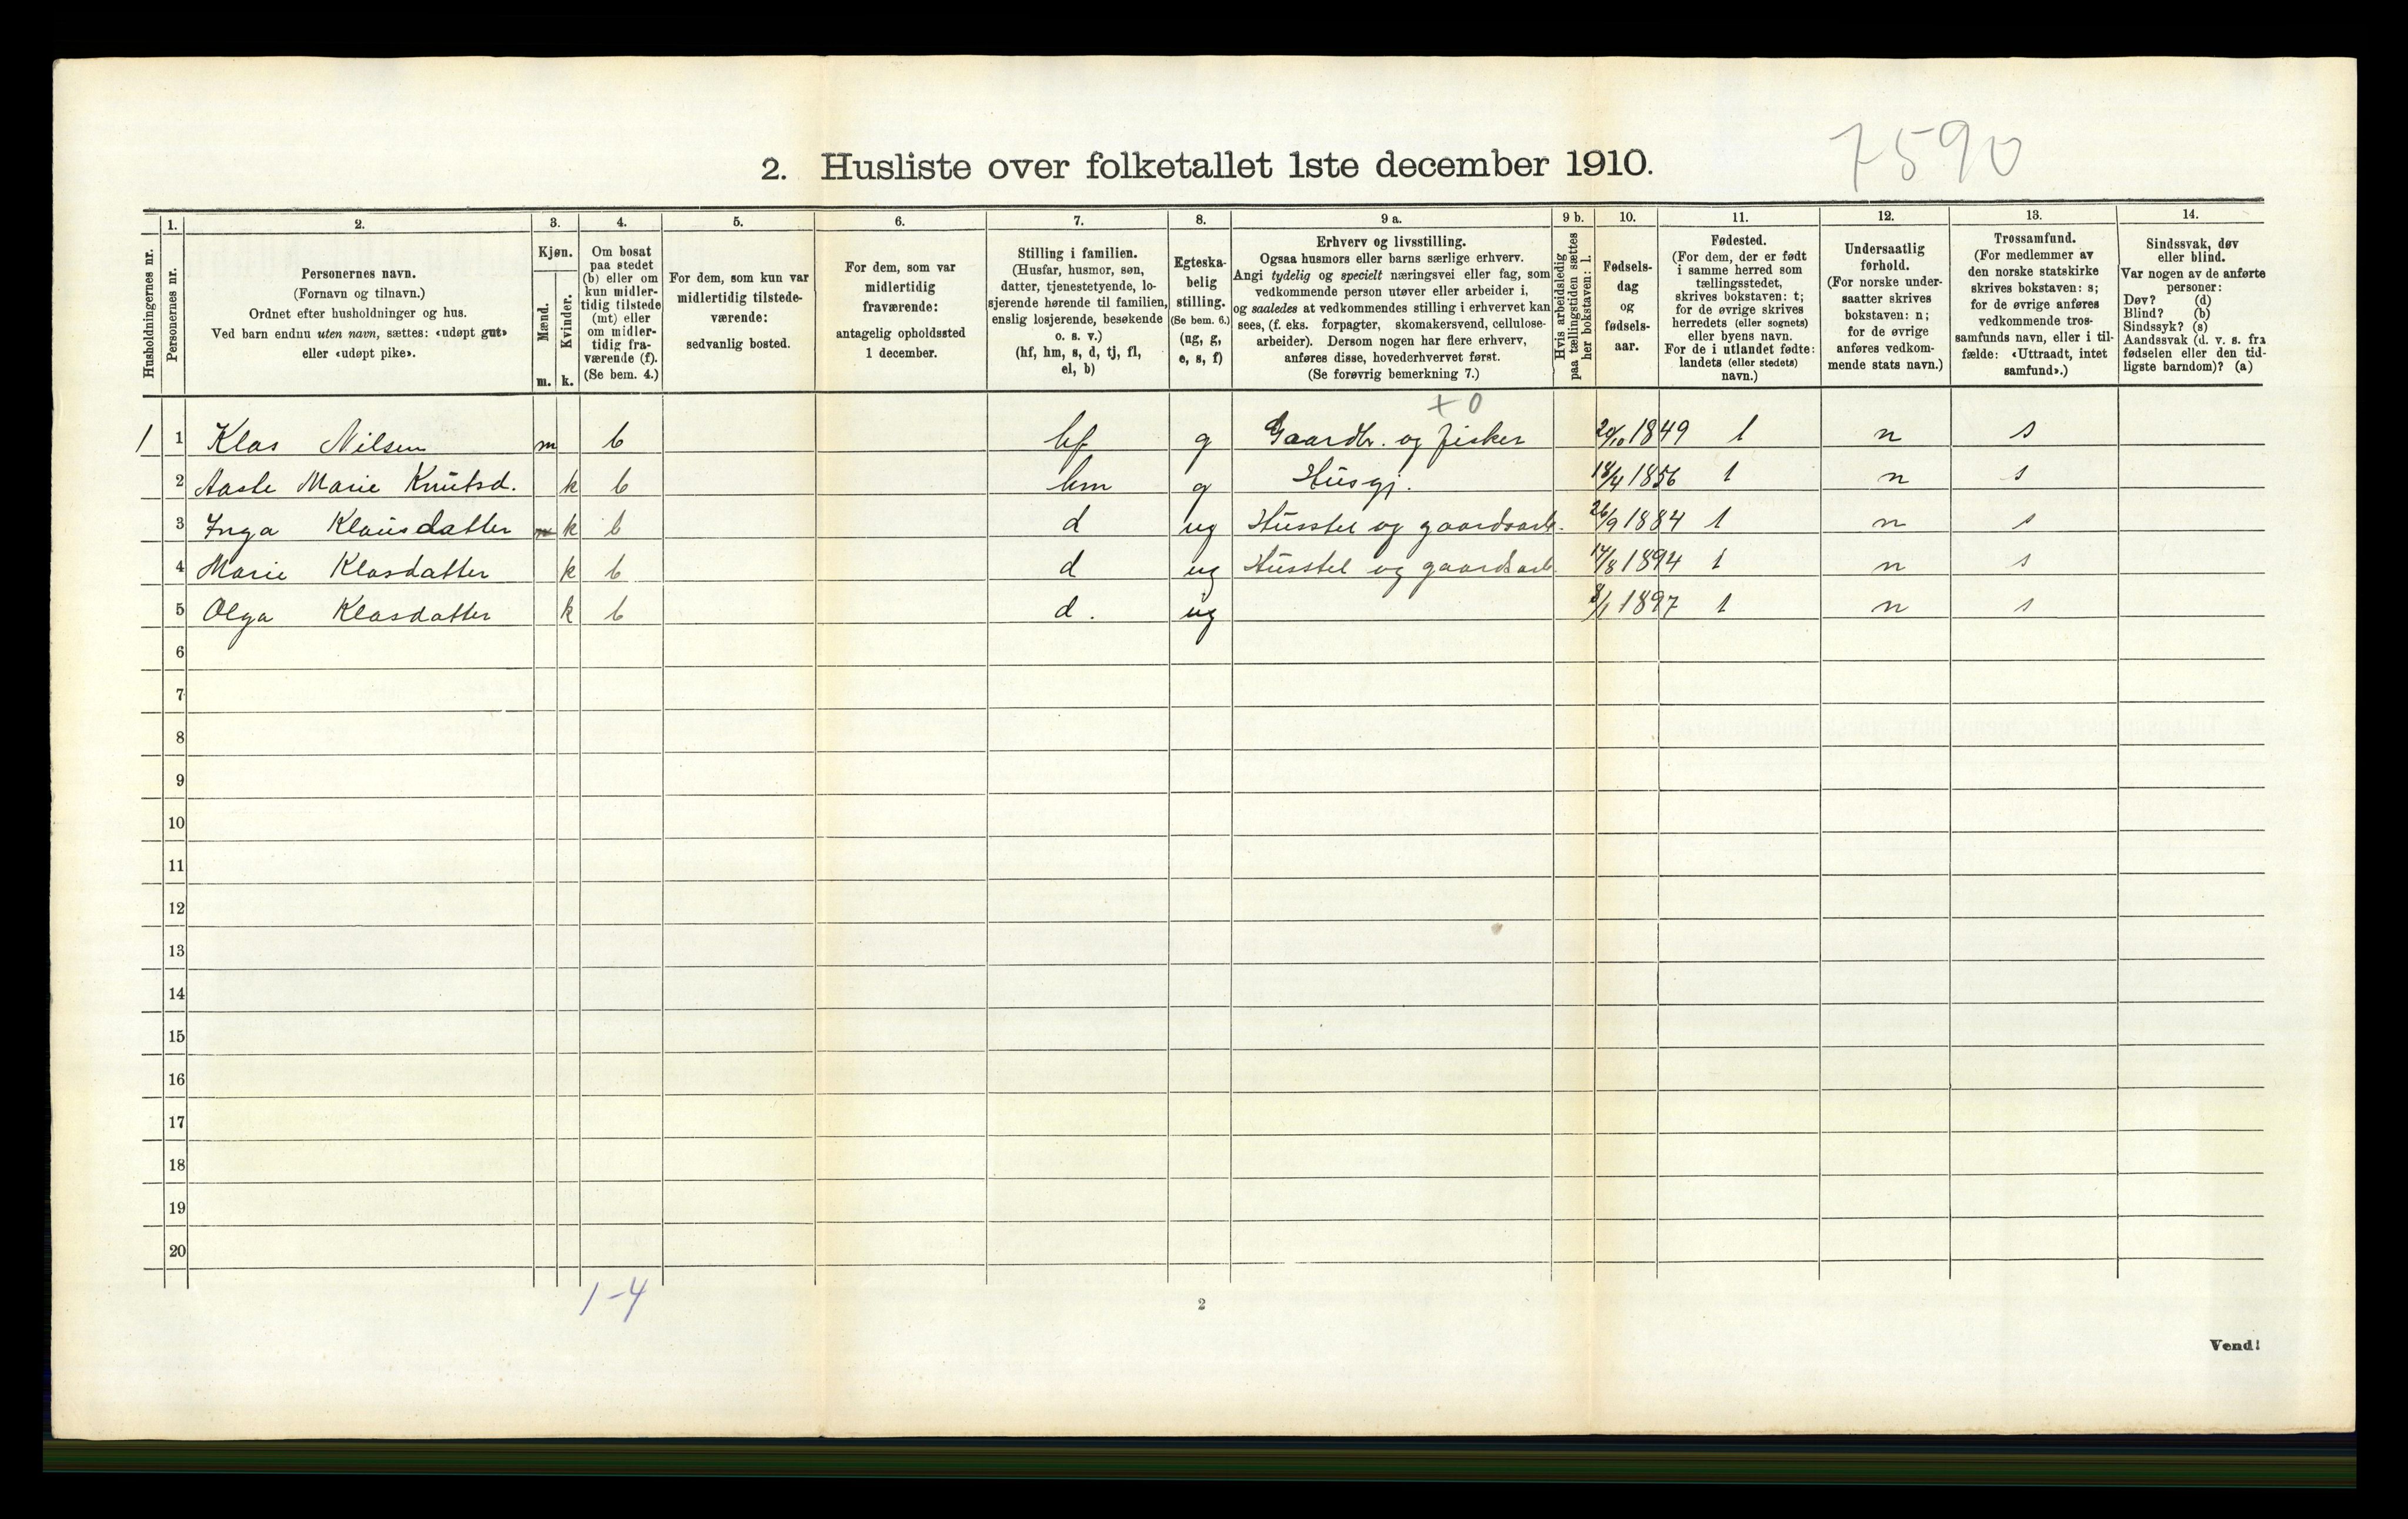 7590
2. Husliste over folketallet 1ste december 1910.
Husholdningernes nr.
1.
Personernes nr.
2.
Personernes navn.
(Fornavn og tilnavn.)
Ordnet efter husholdninger og hus.
Ved barn endnu uten navn, sættes: «udøpt gut»
eller «udøpt pike».
3.
Kjøn.
Mænd.
m.
Kvinder.
k.
4.
Om bosat
paa stedet
(b) eller om
kun midler-
tidig tilstede
(mt) eller
om midler-
tidig fra-
værende (f).
(Se bem. 4.)
5.
For dem, som kun var
midlertidig tilstede-
værende:
sedvanlig bosted.
6.
For dem, som var
midlertidig
fraværende:
antagelig opholdssted
1 december.
7.
Stilling i familien.
(Husfar, husmor, søn,
datter, tjenestetyende, lo-
sjerende hørende til familien,
enslig losjerende, besøkende
o. s. v.)
(hf, hm, s, d, tj, fl,
el, b)
8.
Egteska-
belig
stilling.
(Se bem. 6.)
(ug, g,
e, s, f)
9 a.
Erhverv og livsstilling.
Ogsaa husmors eller barns særlige erhverv.
Angi tydelig og specielt næringsvei eller fag, som
vedkommende person utøver eller arbeider i,
og saaledes at vedkommendes stilling i erhvervet kan
sees, (f. eks. forpagter, skomakersvend, cellulose-
arbeider). Dersom nogen har flere erhverv,
anføres disse, hovederhvervet først.
(Se forøvrig bemerkning 7.)
9 b.
Hvis arbeidsledig
paa tællingstiden sættes
her bokstaven: l.
10.
Fødsels-
dag
og
fødsels-
aar.
11.
Fødested.
(For dem, der er født
i samme herred som
tællingsstedet,
skrives bokstaven: t;
for de øvrige skrives
herredets (eller sognets)
eller byens navn.
For de i utlandet fødte:
landets (eller stedets)
navn.)
12.
Undersaatlig
forhold.
(For norske under-
saatter skrives
bokstaven: n;
for de øvrige
anføres vedkom-
mende stats navn.)
13.
Trossamfund.
(For medlemmer av
den norske statskirke
skrives bokstaven: s;
for de øvrige anføres
vedkommende tros-
samfunds navn, eller i til-
fælde: «Uttraadt, intet
samfund».)
14.
Sindssvak, døv
eller blind.
Var nogen av de anførte
personer:
Døv? (d)
Blind? (b)
Sindssyk? (s)
Aandssvak (d. v. s. fra
fødselen eller den tid-
ligste barndom)? (a)
+ 0
1 1 Klas Nilsen m b hf g Gaardbr. og fisker 20/10 1849 t n s
2 Aaste Marie Knutsd. k b hm g Husgj. 18/4 1856 t n s
3 Inga Klausdatter m k b d ug Husstel og gaardsarb. 26/9 1884 t n s
4 Marie Klasdatter k b d ug Husstel og gaardsarb. 17/8 1894 t n s
5 Olga Klasdatter k b d. ug 8/1 1897 t n s
6
7
8
9
10
11
12
13
14
15
16
17
18
19
20
1-4
2
Vend!